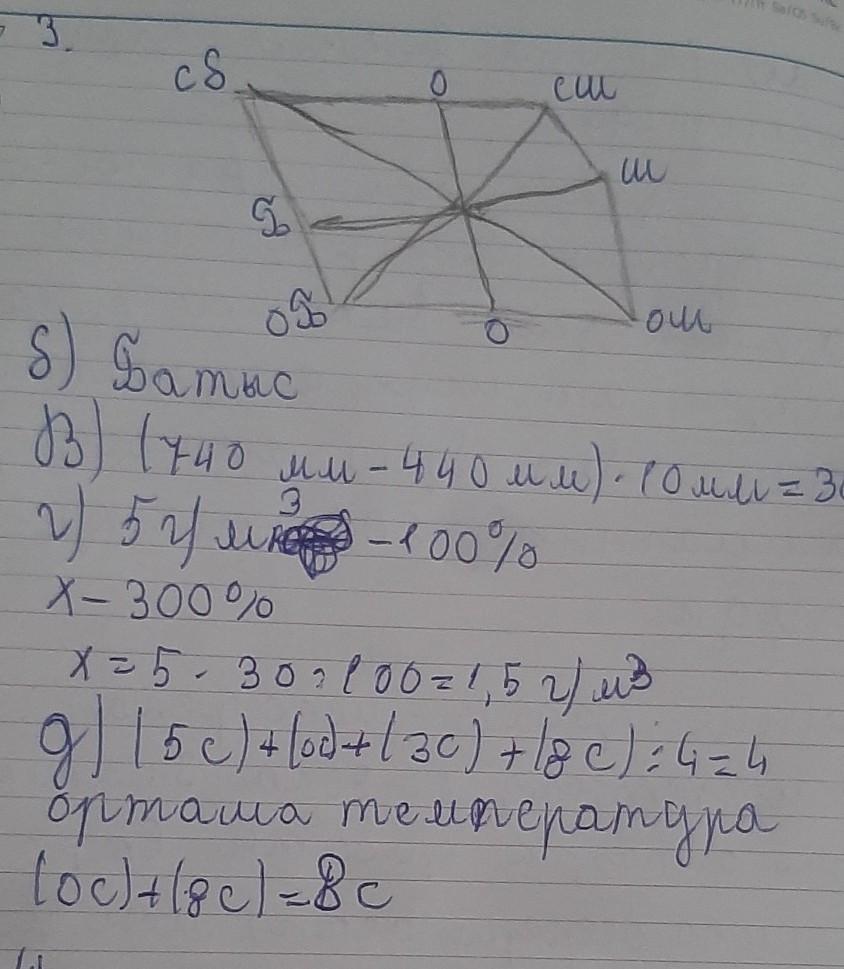 3.
сБ О сш
ш
Б
оБ О ош
б) Батыс
в) (740 мм - 440 мм) · 10 мм = 30
г) 5 г/м³ - 100%
х - 300%
х = 5 · 30 : 100 = 1,5 г/м³
д) (5с) + (0с) + (3с) + (8с) : 4 = 4
орташа температура
(0с) + (8с) = 8с